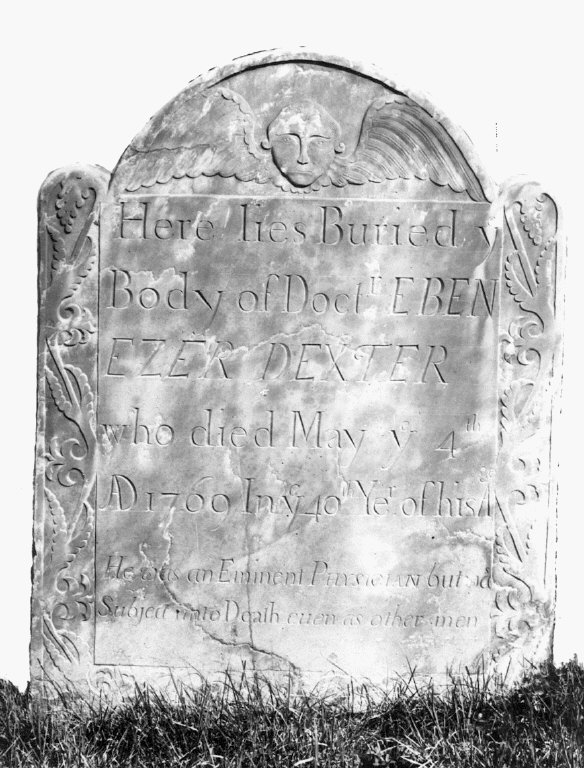 Here lies Buried y
Body of Doct.r EBEN
EZER DEXTER
who died May ye 4th
AD 1769 In ye 40th Yer of his A
He was an Eminent PHYSICIAN but
Subject unto Death even as other men